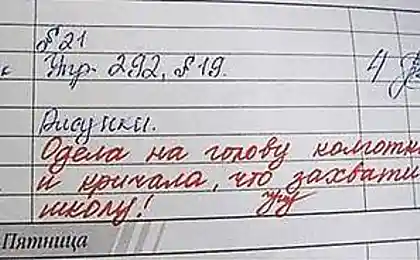 § 21
Упр. 292, § 19. 4
Рисунки.
Одела на голову колготк
и кричала, что захвати
школу!
Пятница